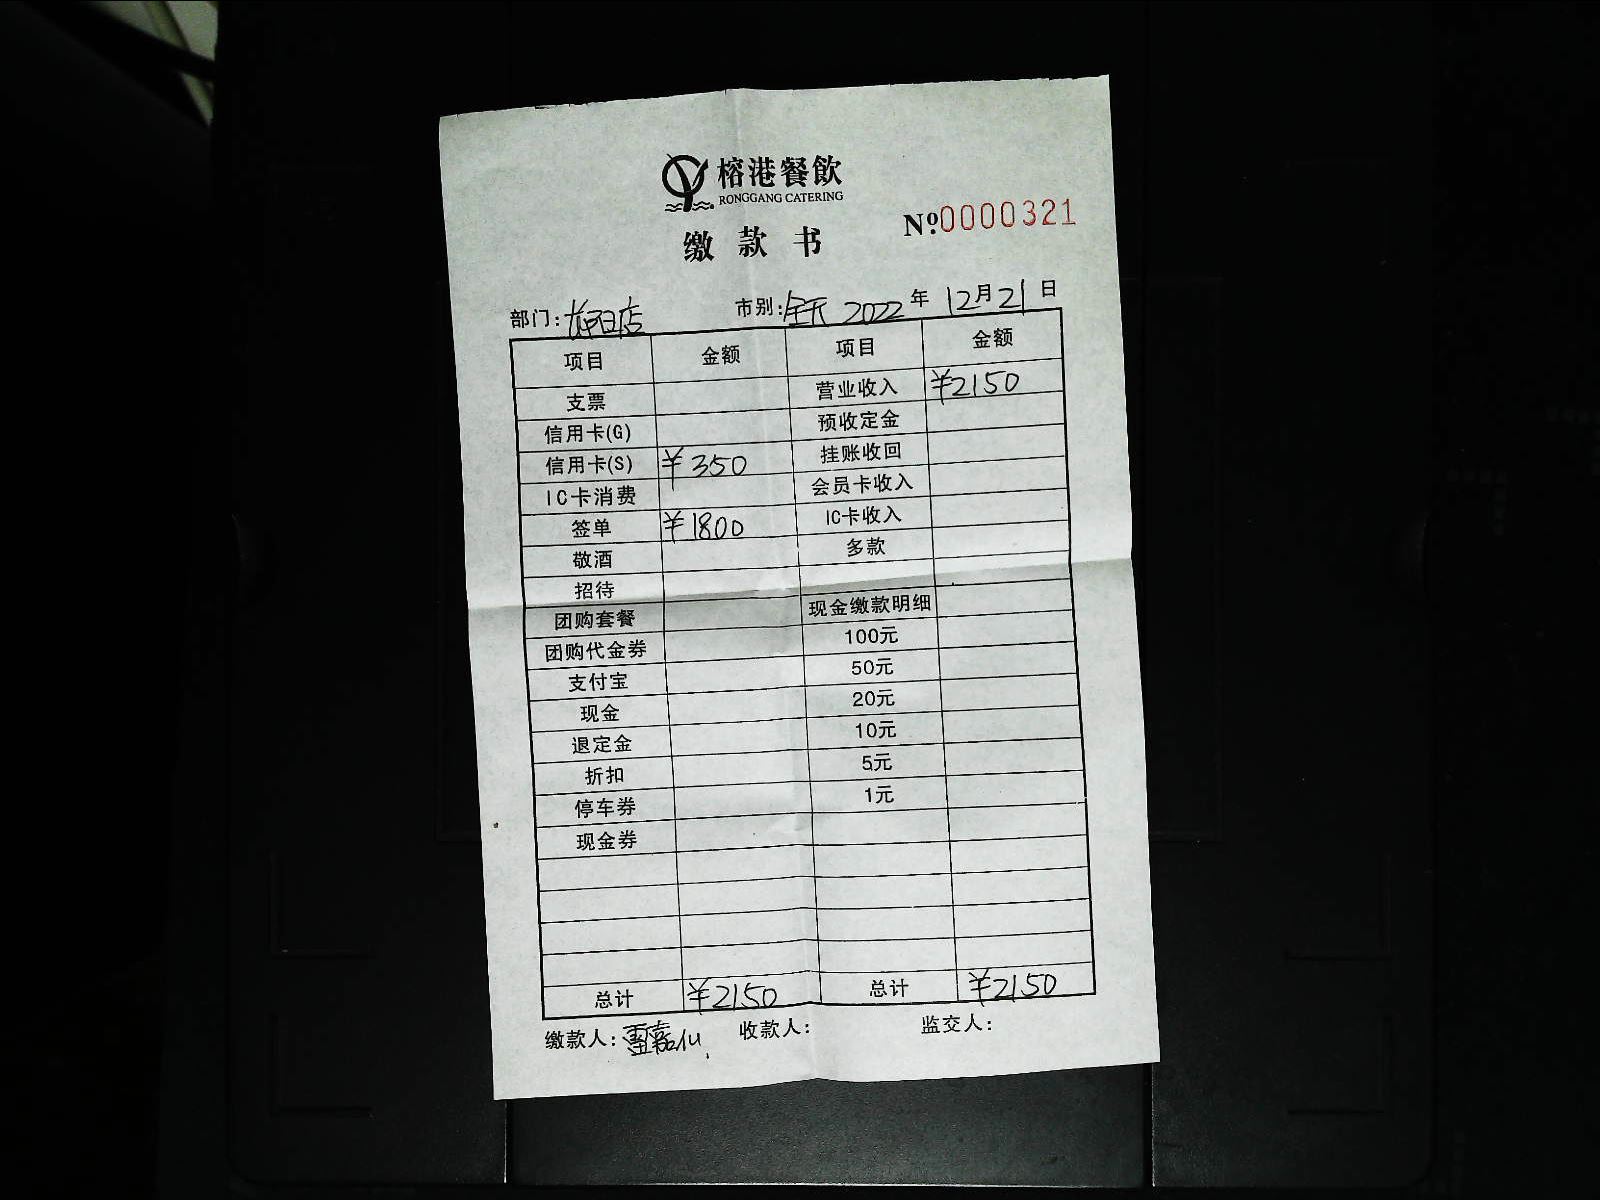 榕港餐飲
RONGGANG CATERING
缴款书 №0000321
部门: 店 市别:全天 2022年12月21日
项目 金额 项目 金额
支票 营业收入 ¥2150
信用卡(G) 预收定金
信用卡(S) ¥350 挂账收回
IC卡消费 会员卡收入
签单 ¥1800 IC卡收入
敬酒 多款
招待
团购套餐 现金缴款明细
团购代金券 100元
支付宝 50元
现金 20元
退定金 10元
折扣 5元
停车券 1元
现金券
总计 ¥2150 总计 ¥2150
缴款人: 嘉仙 收款人: 监交人: